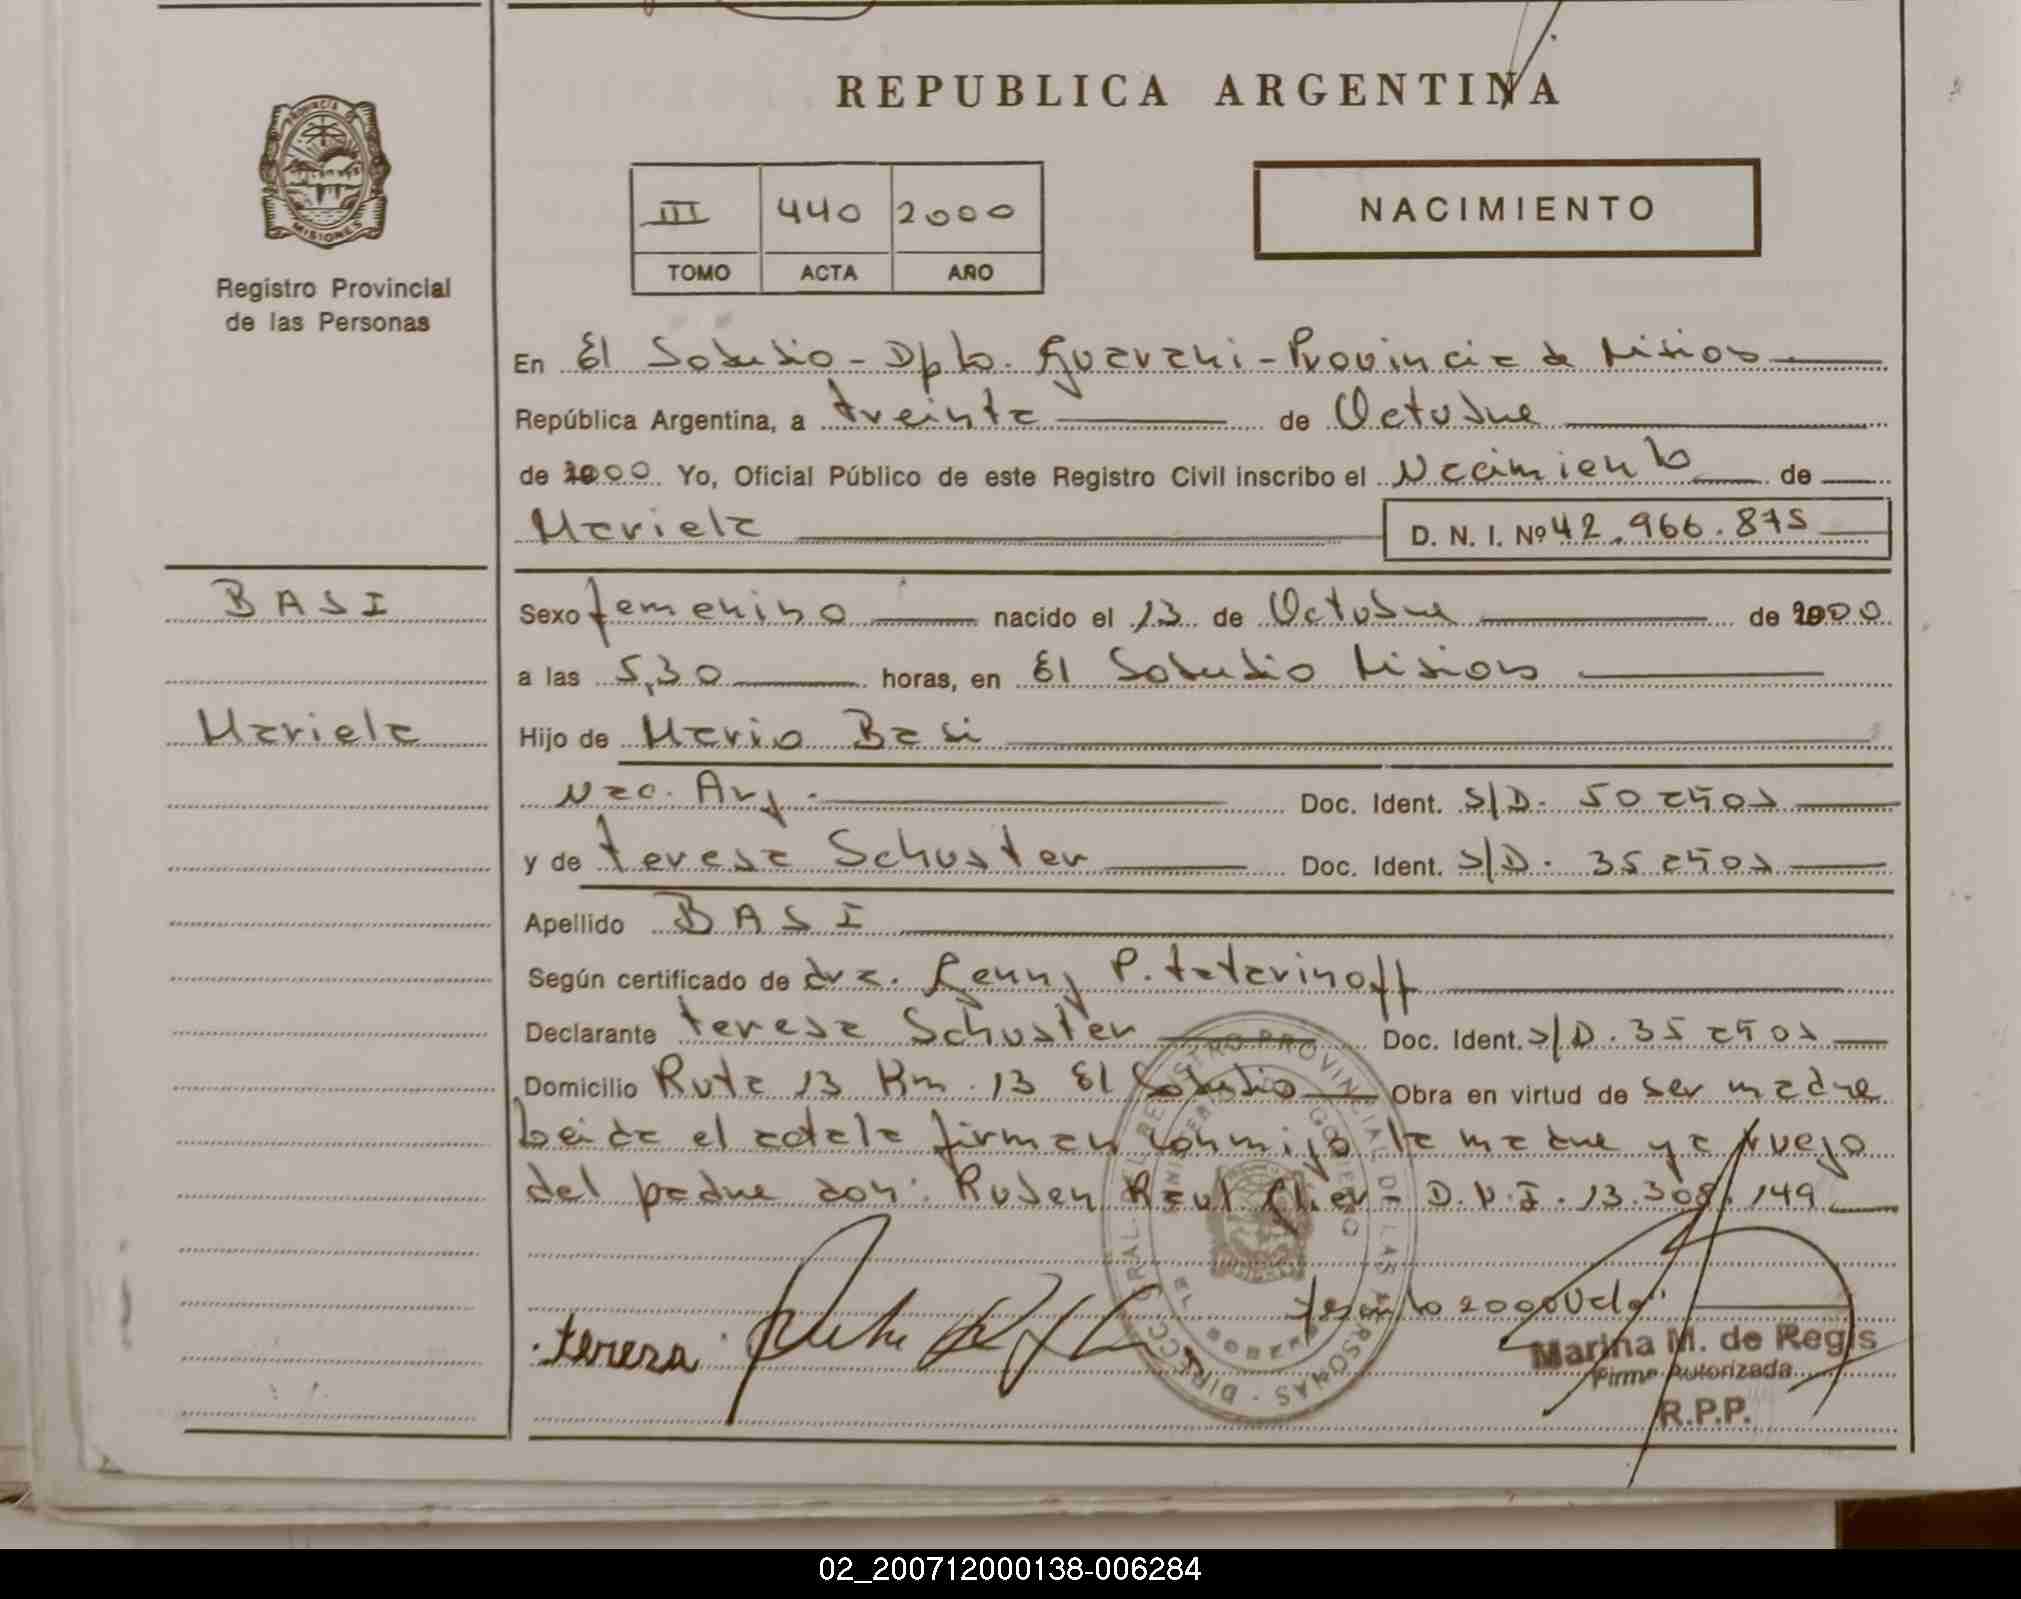 REPUBLICA ARGENTINA
PROVINCIA
MISIONES
Registro Provincial
de las Personas
III 440 2000
TOMO ACTA AÑO
NACIMIENTO
En El Soberbio - Dpto. Guarani - Provincia de Misiones
República Argentina, a treinta de Octubre
de 2000 Yo, Oficial Público de este Registro Civil inscribo el Nacimiento de
Mariela D. N. I. Nº 42.966.875
BASI
Mariela
Sexo femenino nacido el 13 de Octubre de 2000
a las 5,30 horas, en El Soberbio Misiones
Hijo de Mario Basi
Nac. Arg. Doc. Ident. S/D. 50 años
y de teresa Schuster Doc. Ident. S/D. 35 años
Apellido BASI
Según certificado de dra. Genny P. tatarinoff
Declarante teresa Schuster Doc. Ident. S/D. 35 años
Domicilio Ruta 13 Km. 13 El Soberbio Obra en virtud de ser madre
Leida el acta la firman conmigo la madre y a ruego
del padre don: Ruben Raul D.N.I. 13.308.149
teresa
2000 Vale
Marina M. de Regis
Firma Autorizada
R.P.P.
DIRECC. GRAL. DEL REGISTRO PROVINCIAL DE LAS PERSONAS
02_200712000138-006284